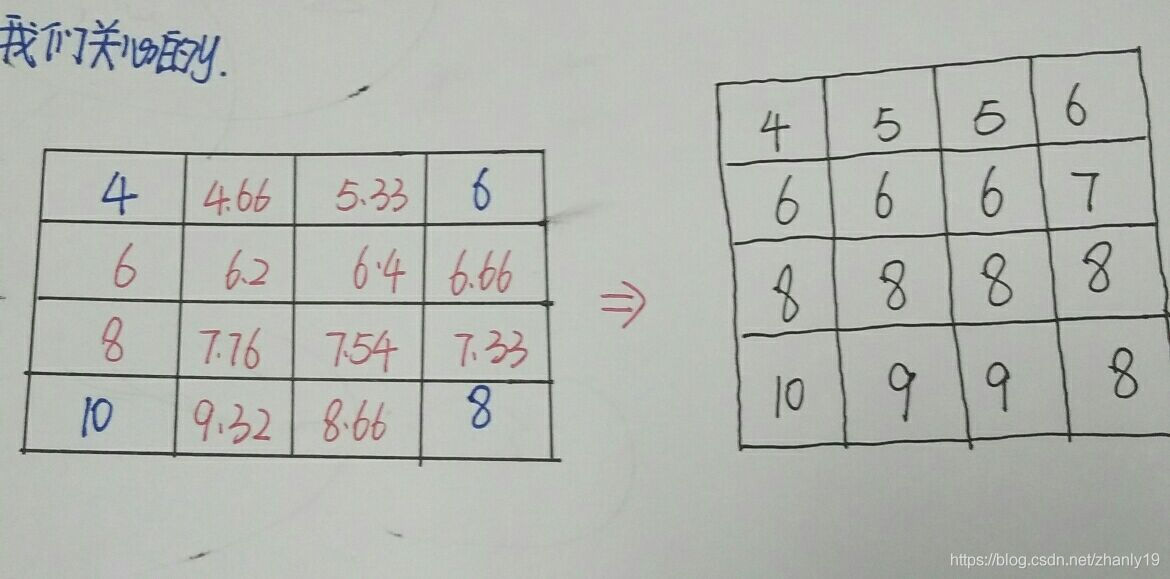 我们关心的y.
4 4.66 5.33 6
6 6.2 6.4 6.66
8 7.76 7.54 7.33
10 9.32 8.66 8
⇒
4 5 5 6
6 6 6 7
8 8 8 8
10 9 9 8
https://blog.csdn.net/zhanly19